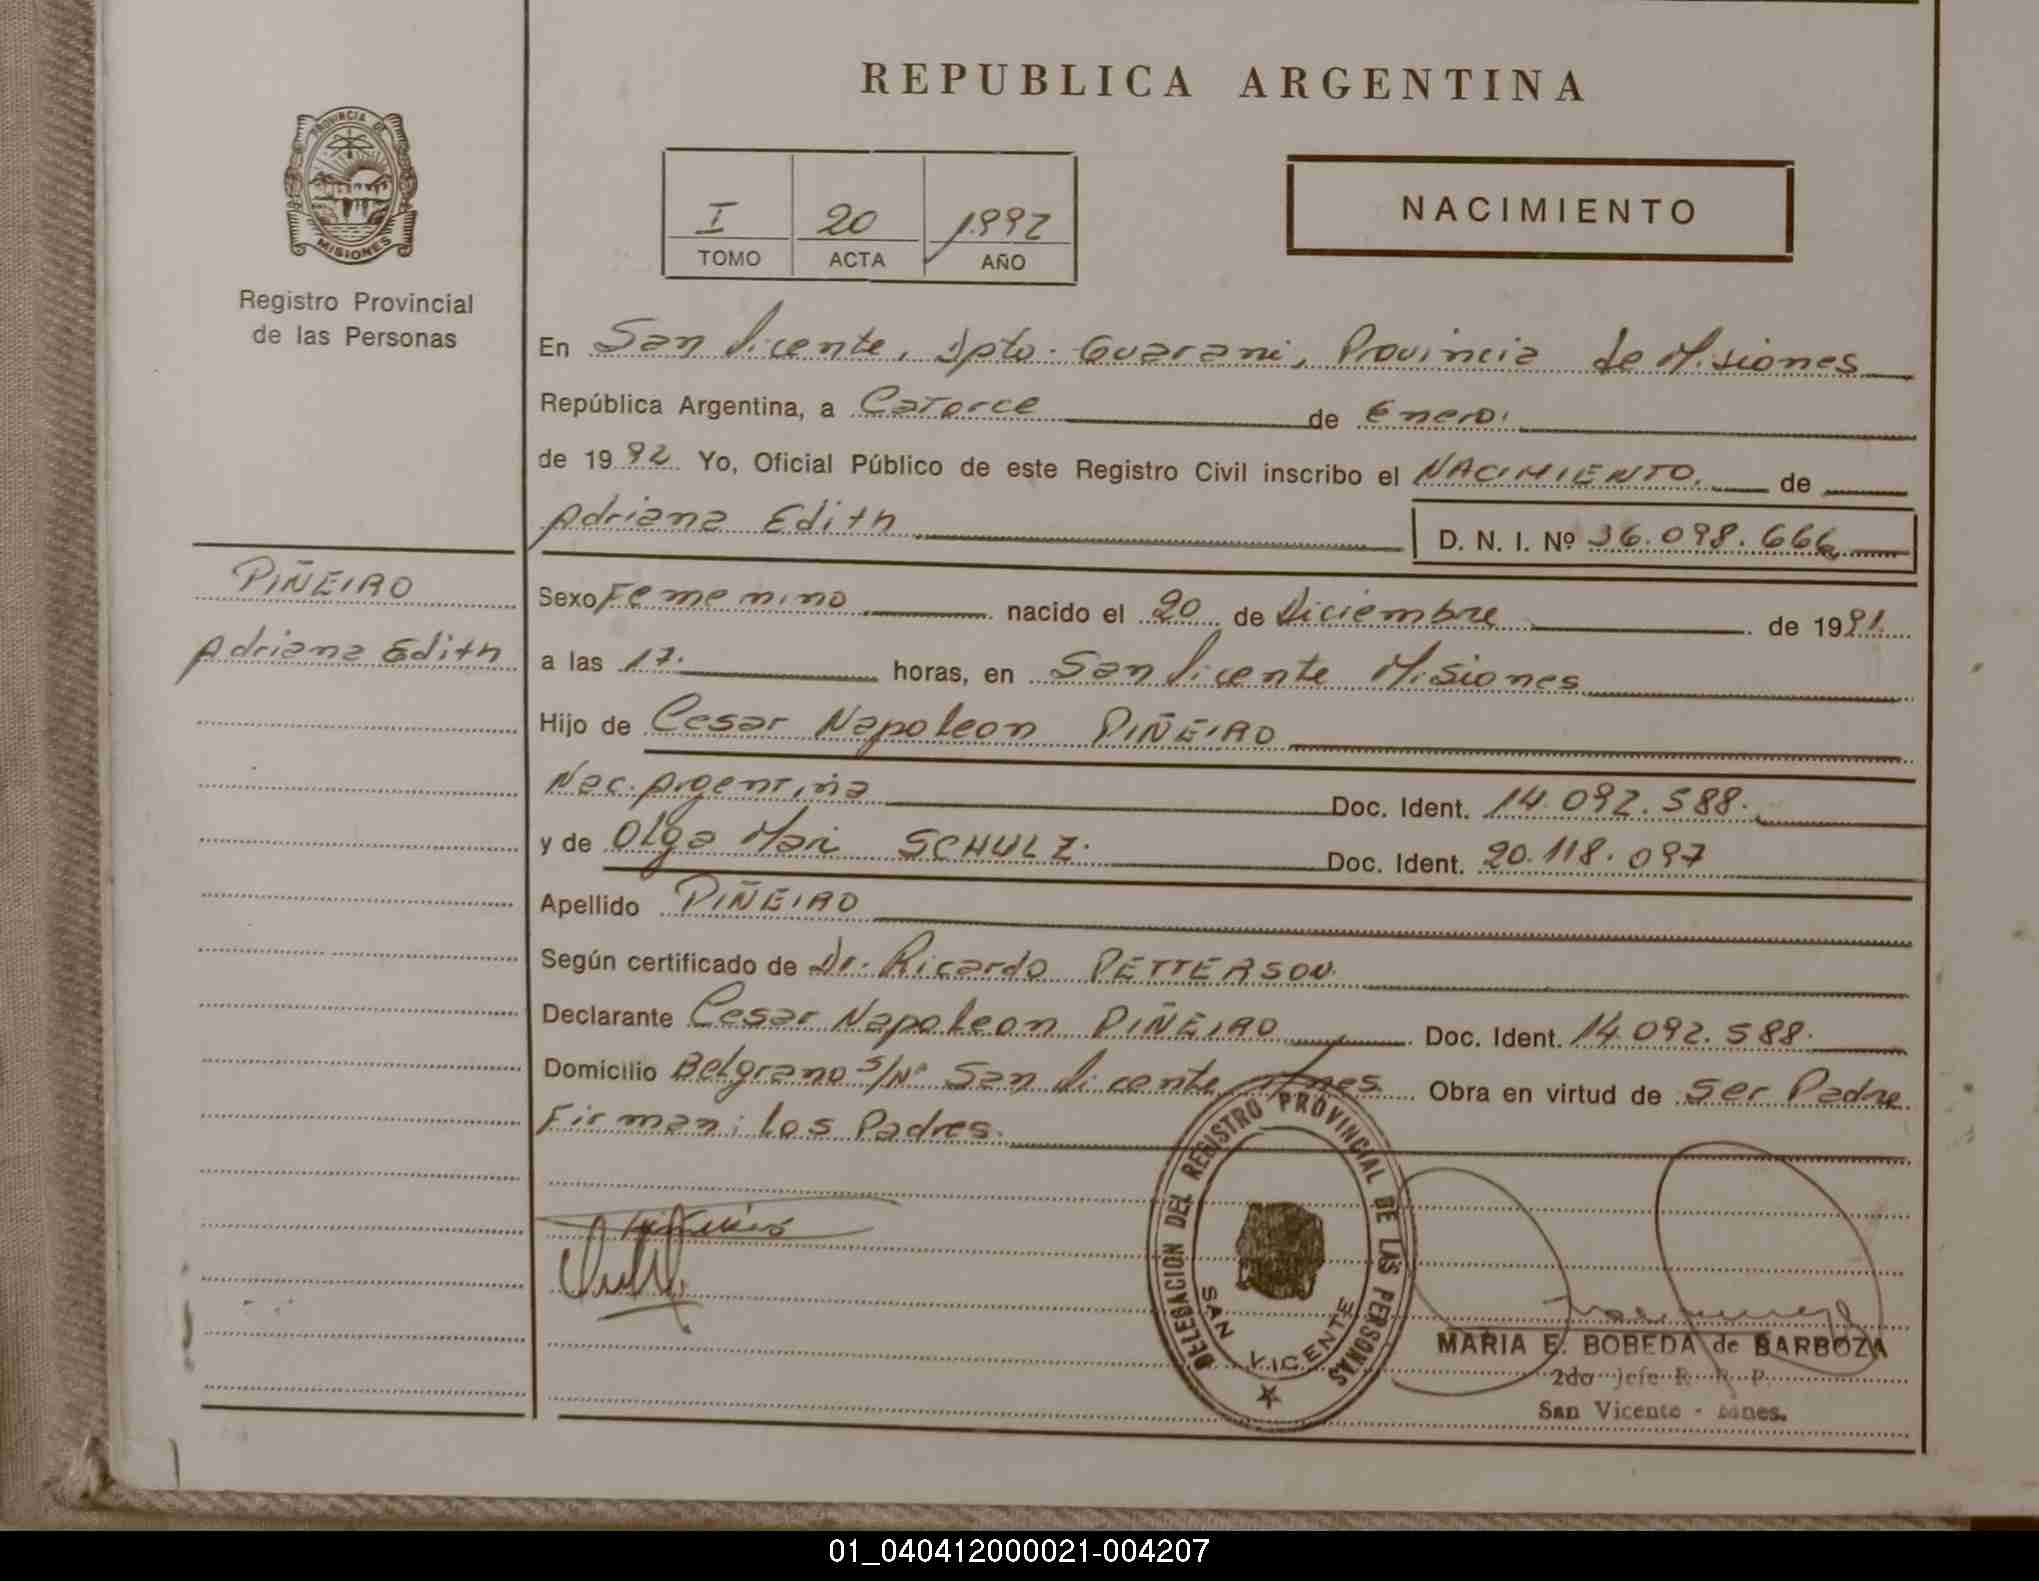 REPUBLICA ARGENTINA
PROVINCIA DE
MISIONES
Registro Provincial
de las Personas
I 20 1992
TOMO ACTA AÑO
NACIMIENTO
En San Vicente, Dpto. Guarani, Provincia de Misiones
República Argentina, a Catorce de Enero.
de 1992 Yo, Oficial Público de este Registro Civil inscribo el NACIMIENTO. de
Adriana Edith D. N. I. Nº 36.098.666
PIÑEIRO
Adriana Edith
Sexo Femenino nacido el 20 de Diciembre de 1991
a las 17. horas, en San Vicente Misiones
Hijo de Cesar Napoleon PIÑEIRO
Nac. Argentina Doc. Ident. 14.092.588.
y de Olga Mari SCHULZ. Doc. Ident. 20.118.097
Apellido PIÑEIRO
Según certificado de Dr. Ricardo PETTERSON.
Declarante Cesar Napoleon PIÑEIRO Doc. Ident. 14.092.588.
Domicilio Belgrano S/Nº San Vicente Mnes. Obra en virtud de ser Padre
Firman: los Padres.
DELEGACION DEL REGISTRO PROVINCIAL DE LAS PERSONAS
SAN VICENTE
MARIA E. BOBEDA de BARBOZA
2do Jefe R. R. P.
San Vicente - Mnes.
01_040412000021-004207